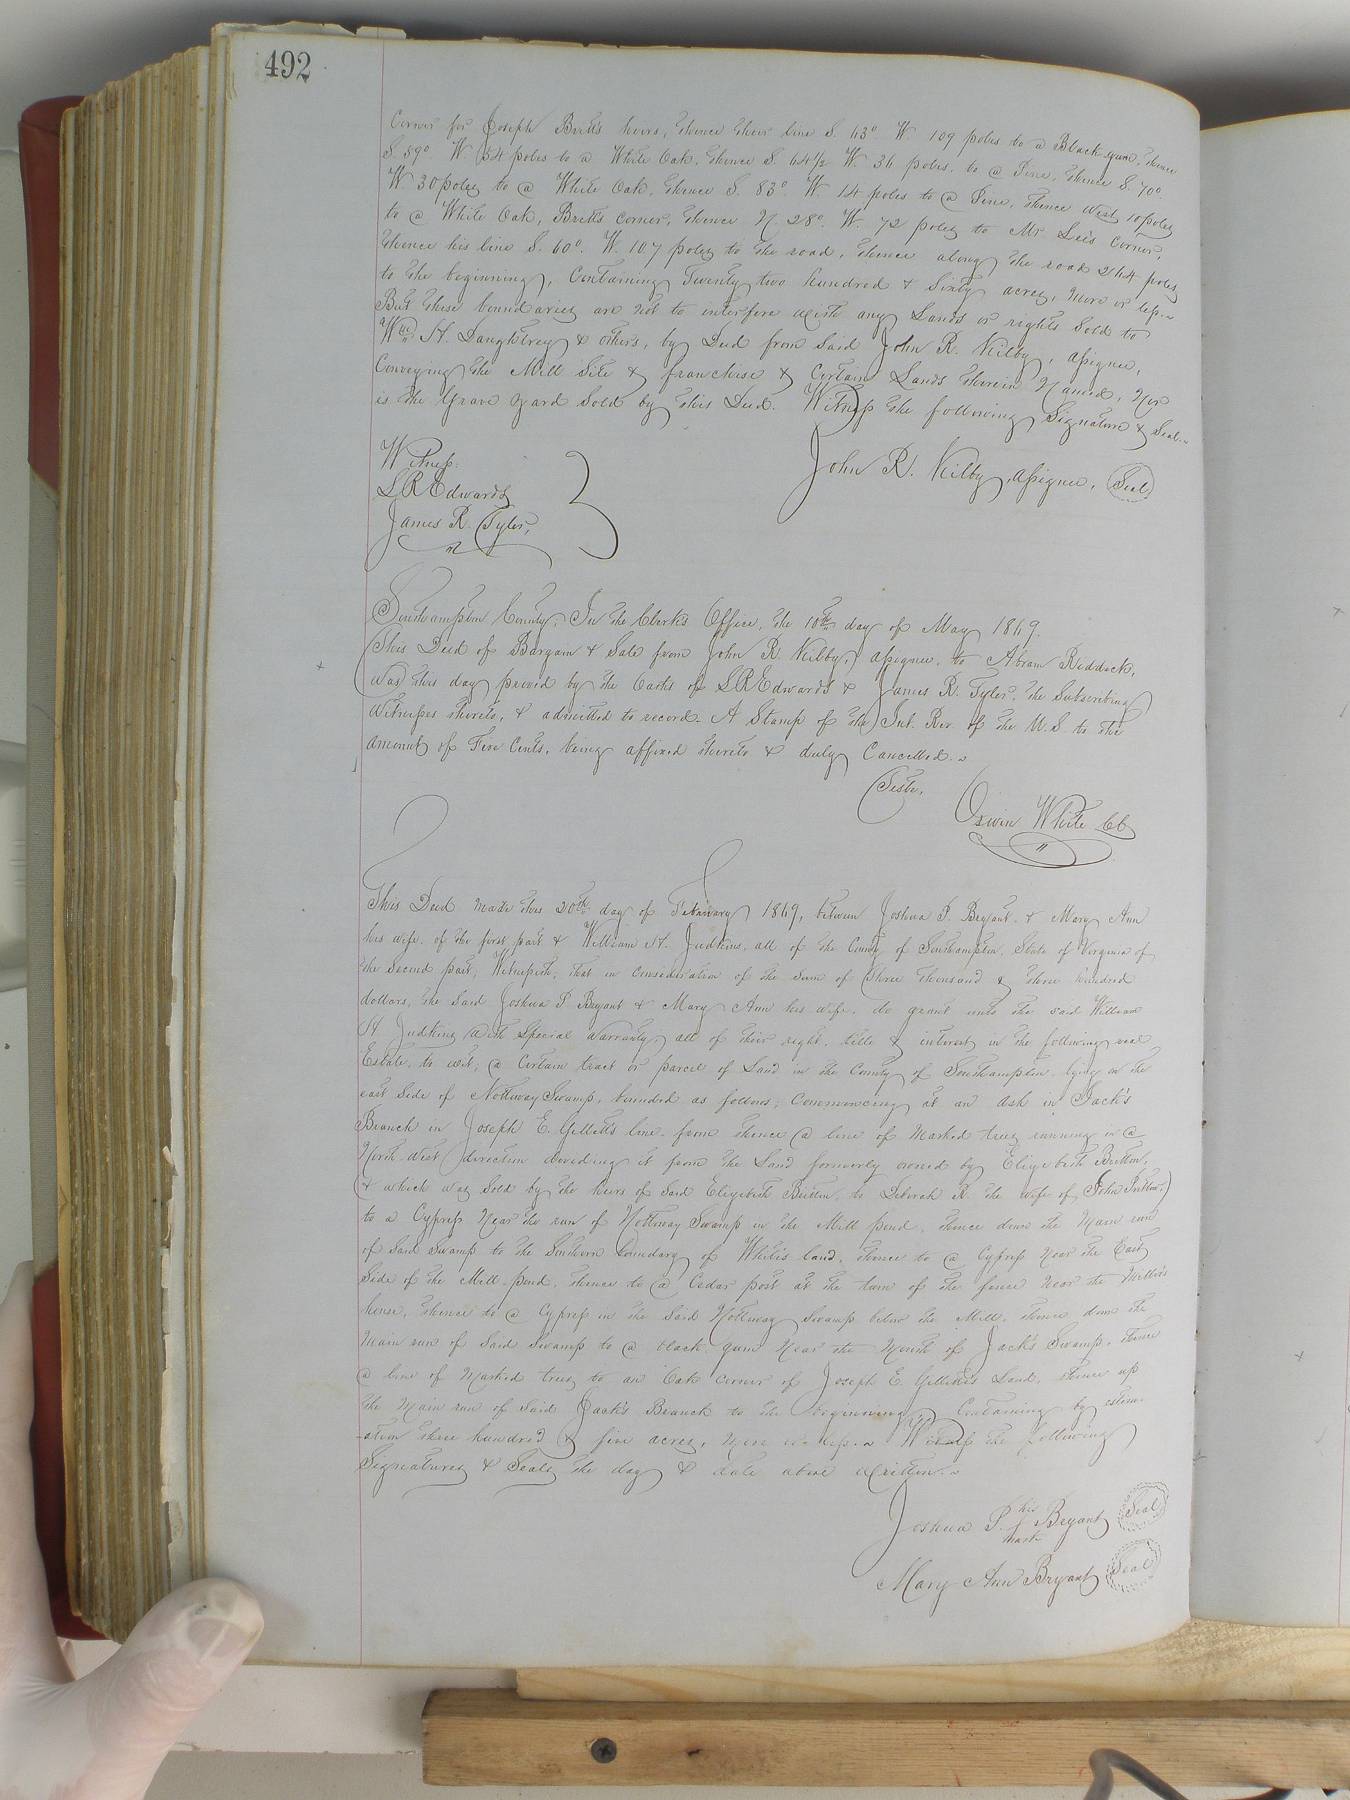 492
Corner for Joseph Britt's heirs, thence their line S. 43° W 109 poles to a Black gum, thence
S. 59° W 54 poles to a White Oak, thence S. 64½ W. 36 poles, to a Pine, thence S. 70°
W 30 poles to a White Oak, thence S. 83° W. 14 poles to a Pine, thence West 10 poles
to a White Oak, Britt's corner, thence N. 28° W. 72 poles to Mr Lee's corner,
thence his line S. 60° W. 107 poles to the road, thence along the road 264 poles
to the beginning, Containing Twenty two hundred & Sixty acres, more or less.
But these boundaries are not to interfere with any Lands or rights Sold to
Wm H. Daughtrey & others, by Deed from said John R. Kilby, assignee,
Conveying the Mill Site & franchise & Certain Lands therein Named, Nor
is the Grave yard Sold by this Deed. Witness the following Signature & Seal.
John R. Kilby, assignee, (Seal)
Witness:
L R Edwards
James R. Tyler,
Southampton County: In the Clerk's Office, the 10th day of May 1869.
This Deed of Bargain & Sale from John R. Kilby, assignee, to Abram Riddick,
was this day proved by the Oaths of L R Edwards & James R. Tyler, the Subscribing
Witnesses thereto, & admitted to record. A Stamp of the Int. Rev. of the U.S. to the
amount of Five Cents, being affixed thereto & duly Cancelled.
Teste,
Orwin White CC
This Deed made this 20th day of February 1869, between Joshua P. Bryant & Mary Ann
his wife, of the first part & William H. Judkins, all of the County of Southampton, State of Virginia of
the second part, Witnesseth, that in consideration of the sum of three thousand & three hundred
dollars, the said Joshua P Bryant & Mary Ann his wife, do grant unto the said William
H Judkins with Special Warranty, all of their right, title & interest in the following real
Estate, to wit; a Certain tract or parcel of Land in the County of Southampton, lying on the
east Side of Nottoway Swamp, bounded as follows; Commencing at an Ash in Jack's
Branch in Joseph E. Gillett's line, from thence a line of marked trees running in a
North West direction dividing it from the Land formerly owned by Elizebeth Britton,
& which was sold by the heirs of said Elizebeth Britton, to Deborah R. the wife of John
to a Cypress Near the run of Nottoway Swamp in the Mill pond, thence down the Main run
of said Swamp to the Southern boundary of White's land, thence to a Cypress Near the East
Side of the Mill-pond, thence to a Cedar post at the turn of the fence Near the Miller's
house, thence to a Cypress in the said Nottoway Swamp below the Mill, thence down the
Main run of said Swamp to a black gum Near the Mouth of Jack's Swamp, thence
a line of Marked trees to an Oak corner of Joseph E. Gillett's Land, thence up
the Main run of said Jack's Branch to the beginning, Containing by estim-
-ation three hundred & five acres, More or less. Witness the following
Signatures & Seals the day & date above Written.
Joshua P. his mark Bryant (Seal)
Mary Ann Bryant (Seal)